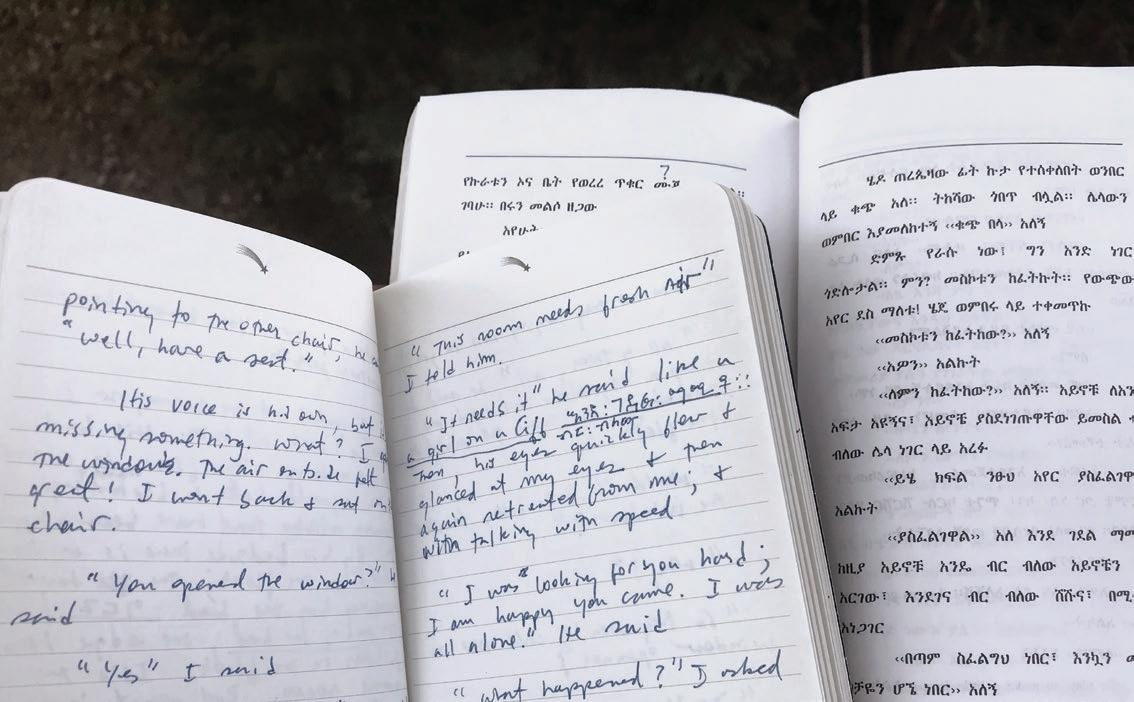 pointing to the other chair, he
"well, have a seat."
His voice is his own, but
missing something. What? I
the windows. The air outside felt
great! I went back & sat
chair.
"You opened the window?"
said
"Yes" I said
"This room needs fresh air"
I told him.
"It needs it" he said like a
a girl on a cliff
then, his eyes quickly flew &
glanced at my eyes & then
again retreated from me; &
with talking with speed
"I was looking for you hard;
I am happy you came. I was
all alone." He said
"what happened?" I asked
?
የኩራቱን ኦና ቤት የወረረ ጥቁር
ገባሁ። በሩን መልሶ ዘጋው
እየሁት
ሄዶ ጠረጴዛው ፊት ኩታ የተሰቀለበት ወንበር
ላይ ቁጭ አለ። ትከሻው ጎበጥ ብሏል። ሌላውን
ወምበር እያመለከተኝ ‹‹ቁጭ በላ›› አለኝ
ድምጹ የራሱ ነው፤ ግን አንድ ነገር
ጎድሎታል። ምን? መስኮቱን ከፈትኩት። የውጭው
አየር ደስ ማለቱ! ሄጄ ወምበሩ ላይ ተቀመጥኩ
‹‹መስኮቱን ከፈትከው?›› አለኝ
‹‹አዎን›› አልኩት
‹‹ለምን ከፈትከው?›› አለኝ። አይኖቹ ለአን
አፍታ አዩኝና፤ አይኖቼ ያስደነገጡዋቸው ይመስል
ብለው ሌላ ነገር ላይ አረፉ
‹‹ይሄ ክፍል ንፁህ አየር ያስፈልገዋ
አልኩት
‹‹ያስፈልገዋል›› አለ እንደ ገደል ማሚ
ከዚያ አይኖቹ እንዴ ብር ብለው አይኖቼን
አርገው፤ እንደገና ብር ብለው ሸሹና፤ በሚ
አነጋገር
‹‹በጣም ስፈልግህ ነበር፤ እንኳን
ቻዬን ሆኜ ነበር›› አለኝ